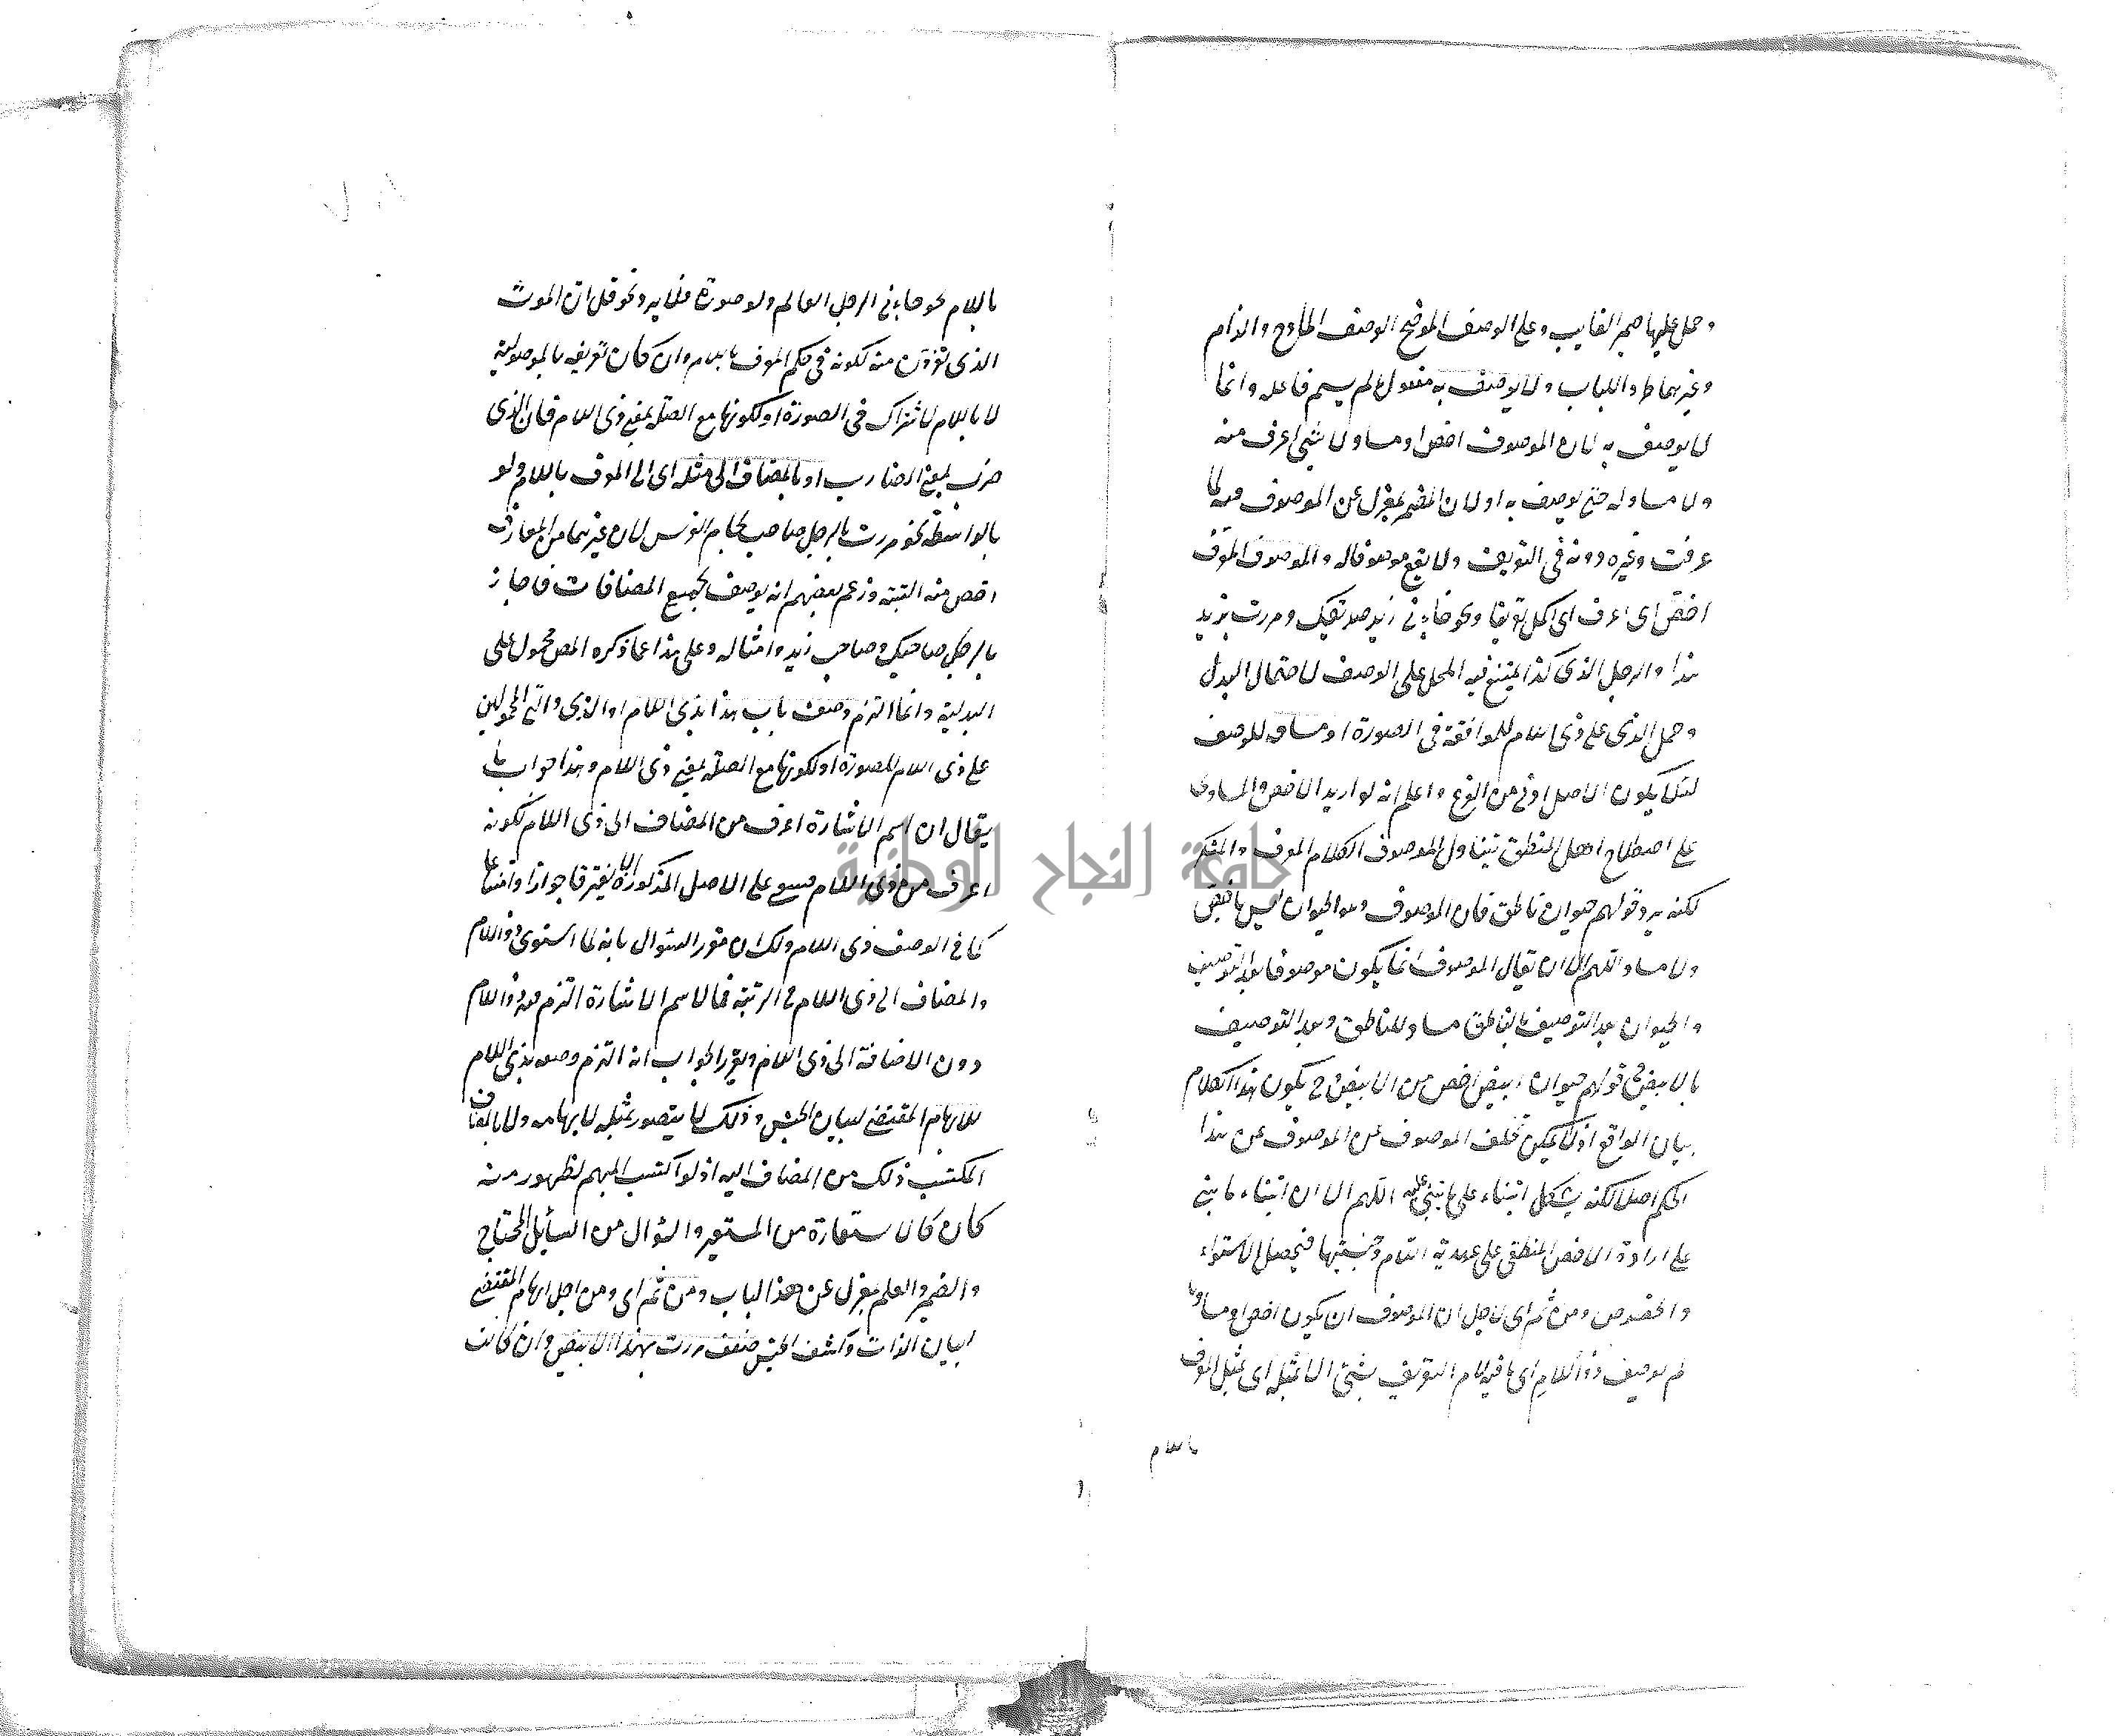 وحمل عليها ضمير الغايب وعلى الوصف الموضح الوصف المادح والذام
وغيرهما طردا للباب ولا يوصف به مفعول ما لم يسم فاعله وانما
لا يوصف به لان الموصوف اخص او مساو ولا شئ اعرف منه
ولا مساو له حتى يوصف به او لان المضمر بمعزل عن الموصوف فيه لما
عرفت وغيره دونه في التعريف ولا يقع موصوفا له والموصوف المعرف
اخص اى اعرف اى اكمل تعريفا ونحو جاءنى زيد صديقك ومررت بزيد
هذا والرجل الذى كذا يمتنع فيه الحمل على الوصف لاحتمال البدل
وحمل الذى على ذى اللام للموافقة فى الصورة او مساو للوصف
لئلا يكون الاصل ادنى من الفرع واعلم انه لو اريد الاخص والمساوى
على اصطلاح اهل المنطق يتناول الموصوف الكلام المعرف والمنكر
لكنه يرد قولهم حيوان ناطق فان الموصوف وهو الحيوان ليس باخص
ولا مساو اللهم الا ان يقال الموصوف انما يكون موصوفا بعد التوصيف
والحيوان بعد التوصيف بالناطق مساو للناطق وبعد التوصيف
بالابيض فى قولهم حيوان ابيض اخص من الابيض وح يكون هذا الكلام
بيان الواقع اذ لا يمكن تخلف الموصوف عن الموصوف عن هذا
الحكم اصلا لكنه يشكل ابتناء على ما يبتنى عليه اللهم الا ان ابتناء ما يبنى
على ارادة الاخص المنطقى على عهدية اللام وجنسيتها فيحصل الاستواء
والخصوص ومن ثم اى لاجل ان الموصوف ان يكون اخص او مساويا
لم يوصف ذو اللام اى ما فيه لام التعريف بشئ الا بمثله اى بمثل المعرف
باللام
٧٨
باللام نحو جاءنى الرجل العالم ولو صورة فلا يرد نحو قل ان الموت
الذى تفرون منه لكونه فى حكم المعرف باللام وان كان تعريفه بالموصولية
لا باللام لاشتراك فى الصورة او لكونها مع الصلة بمعنى ذى اللام فان الذى
ضرب بمعنى الضارب او بالمضاف الى مثله اى الى المعرف باللام ولو
بالواسطة نحو مررت بالرجل صاحب لجام الفرس لان غيرهما من المعارف
اخص منه البتة وزعم بعضهم انه يوصف بجميع المضافات فاجاز
بالرجل صاحبك وصاحب زيد وامثاله وعلى هذا مما ذكره المص محمول على
البدلية وانما التزم وصف باب هذا بذى اللام او الذى والتى المحمولين
على ذى اللام للصورة او لكونها مع الصلة بمعنى ذى اللام وهذا جواب ما
يقال ان اسم الاشارة اعرف من المضاف الى ذى اللام لكونه
اعرف من ذى اللام فينبغى على الاصل المذكور ان لا يفترقا جوازا وامتناعا
كما فى الوصف ذى اللام ولك ان تقرر السئوال بانه لما استوى ذو اللام
والمضاف الى ذى اللام فى الرتبة فما لاسم الاشارة التزم فيه ذو اللام
دون الاضافة الى ذى اللام وتقرير الجواب انه التزم وصفه بذى اللام
للابهام المقتضى لبيان الجنس وذلك لا يتصور بمثله لابهامه ولا بالمضاف
المكتسب ذلك من المضاف اليه اذ لو اكتسب المبهم لظهور منه
كان كالاستعارة من المستعير والسؤال من السايل المحتاج
والضمير والعلم بمعزل عن هذا الباب ومن ثم اى ومن اجل ابهام المقتضى
لبيان الذات وكشف الجنس ضعف مررت بهذا الابيض وان كانت
جامعة النجاح الوطنية